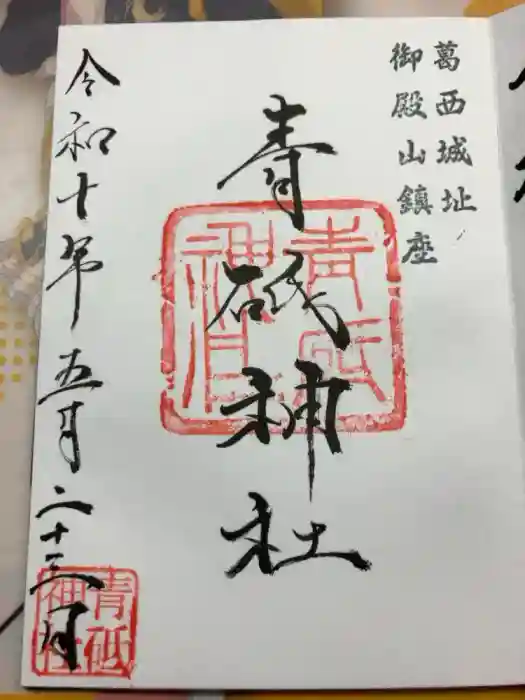 葛西城址
御殿山鎮座
青砥神社
青砥
神社
令和十年五月二十三日
青砥
神社